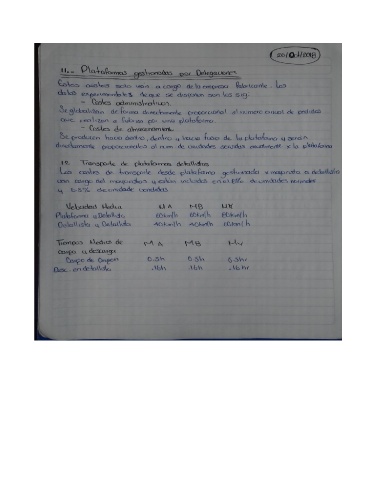 20/01/2018
11.- Plataformas gestionadas por Delegaciones
Estos costes van a cargo de la empresa fabricante. Los
datos experimentales de que se disponen son los sig.
- Costes administrativos
Se globalizan de forma directamente proporcional al número anual de pedidos
que realizan a fábrica por una plataforma.
- Costes de almacenamiento
Se producen hacia dentro, dentro y hacia fuera de la plataforma y serán
directamente proporcionales al num de unidades anualmente x la plataforma
12. Transporte de plataformas detallistas
Los costes de transporte desde plataforma gestionada x mayorista a detallista
van cargo del mayorista y están incluidos en el 15% de unidades
y 0.5% de unidades vendidas
Velocidad Media MA MB MX
Plataforma a Detallista 60 km/h 60 km/h 60 km/h
Detallista a Detallista 40 km/h 40 km/h 60 km/h
Tiempos Medios de MA MB
carga y descarga
0.3h 0.3h 0.3hr
Desc. en detallista .16h .16h .16hr